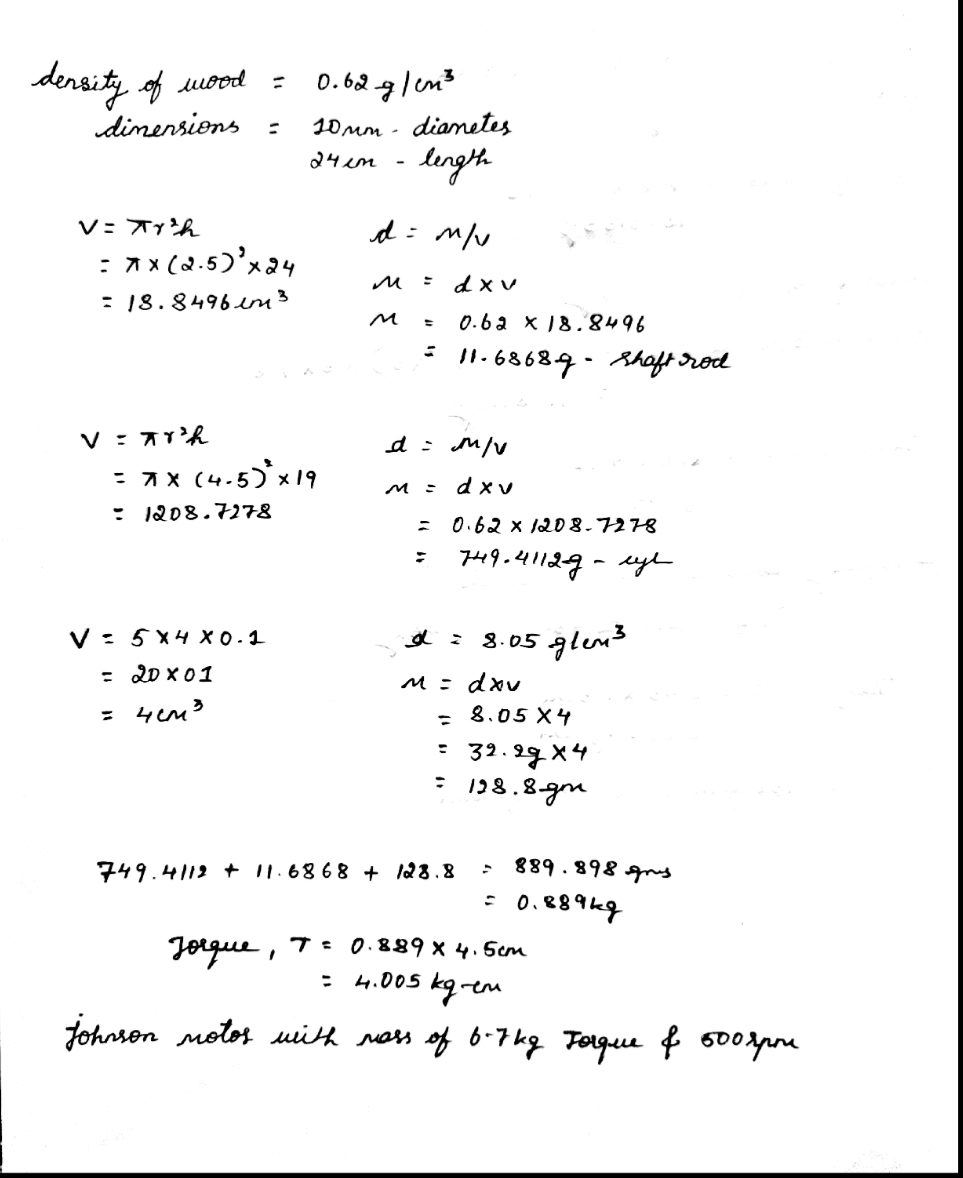 density of wood = 0.62 g/cm³
dimensions = 10mm - diameter
24cm - length
V = πr²h
= π x (2.5)² x 24
= 18.8496 cm³
d = m/v
m = d x v
m = 0.62 x 18.8496
= 11.6868g - shaft rod
V = πr²h
= π x (4.5)² x 19
= 1208.7278
d = m/v
m = d x v
= 0.62 x 1208.7278
= 749.4112g - cyl
V = 5 x 4 x 0.1
= 20 x 01
= 4cm³
d = 8.05 g/cm³
m = dxv
= 8.05 x 4
= 32.2g x 4
= 128.8 gm
749.4112 + 11.6868 + 128.8 = 889.898 gms
= 0.889kg
Torque, T = 0.889 x 4.5cm
= 4.005 kg-cm
Johnson motor with mass of 6.7kg Torque & 500rpm